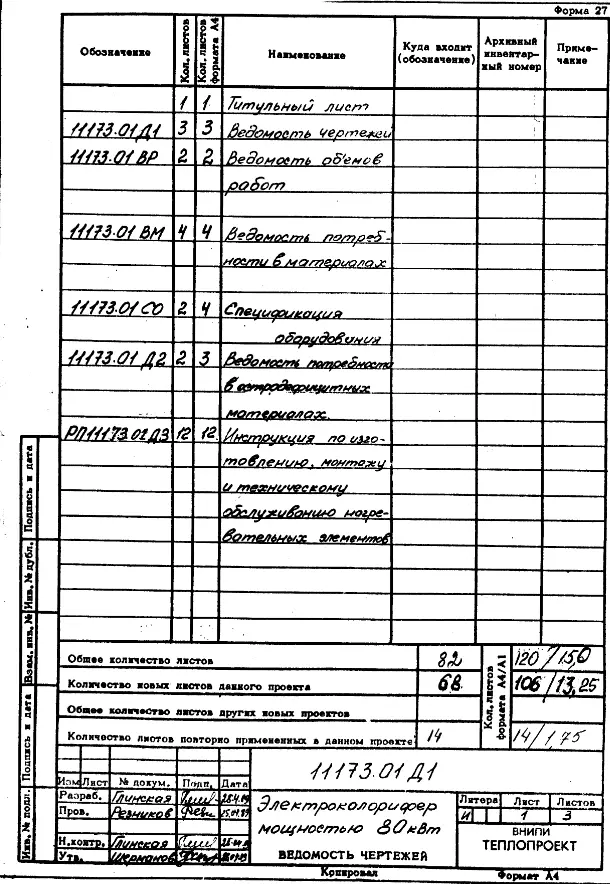 Форма 27
Обозначение Кол. листов Кол. листов формата А4 Наименование Куда входит (обозначение) Архивный инвентарный номер Примечание
1 1 Титульный лист
11173.01 Д1 3 3 Ведомость чертежей
11173.01 ВР 2 2 Ведомость объемов
работ
11173.01 ВМ 4 4 Ведомость потреб-
ности в материалах
11173.01 СО 2 4 Спецификация
оборудования
11173.01 Д2 2 3 Ведомость потребности
в остродефицитных
материалах.
РП11173.01Д3 12 12 Инструкция по изго-
товлению, монтажу
и техническому
обслуживанию нагре-
вательных элементов
Общее количество листов 82 Кол. листов формата А4/А1 120/15,0
Количество новых листов данного проекта 68 106/13,25
Общее количество листов других новых проектов
Количество листов повторно примененных в данном проекте 14 14/1,75
Инв. № подл. Подпись и дата Взам. инв. № Инв. № дубл. Подпись и дата
11173.01 Д1
Изм Лист № докум. Подп. Дата
Разраб. Глинская
Пров. Резников
Н.контр. Глинская
Утв.
Электроколорифер
мощностью 80 кВт
ВЕДОМОСТЬ ЧЕРТЕЖЕЙ
Литера Лист Листов
И 1 3
ВНИПИ
ТЕПЛОПРОЕКТ
Копировал Формат А4